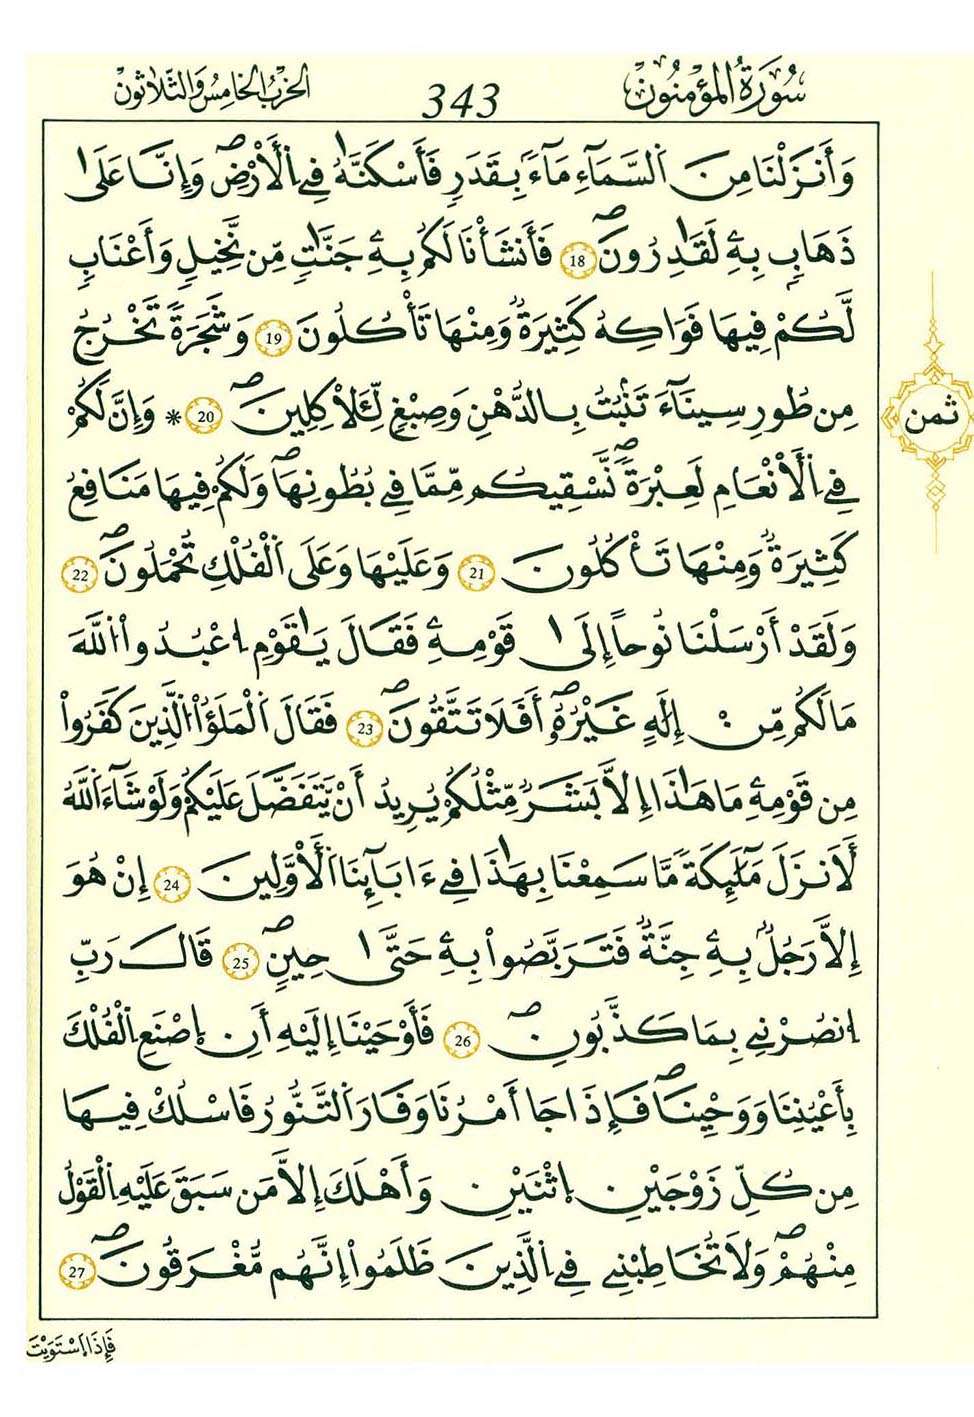 سُورَةُ الْمُؤْمِنُونَ 343 الحِزْبُ الخَامِسُ وَالثَّلَاثُونَ
وَأَنزَلْنَا مِنَ اَ۬لسَّمَآءِ مَآءَۢ بِقَدَرٖ فَأَسْكَنَّٰهُ فِے اِ۬لْأَرْضِۖ وَإِنَّا عَلَىٰ
ذَهَابِۢ بِهِۦ لَقَٰدِرُونَۖ 18 فَأَنشَأْنَا لَكُم بِهِۦ جَنَّٰتٖ مِّن نَّخِيلٖ وَأَعْنَٰبٖ
لَّكُمْ فِيهَا فَوَٰكِهُ كَثِيرَةٞ وَمِنْهَا تَأْكُلُونَ 19 وَشَجَرَةٗ تَخْرُجُ
مِن طُورِ سِينَآءَ تَنۢبُتُ بِالدُّهْنِ وَصِبْغٖ لِّلْأٓكِلِينَۖ 20 * وَإِنَّ لَكُمْ
فِے اِ۬لْأَنْعَٰمِ لَعِبْرَةٗۖ نَّسْقِيكُم مِّمَّا فِے بُطُونِهَاۖ وَلَكُمْ فِيهَا مَنَٰفِعُ
كَثِيرَةٞ وَمِنْهَا تَأْكُلُونَ 21 وَعَلَيْهَا وَعَلَى اَ۬لْفُلْكِ تُحْمَلُونَۖ 22
وَلَقَدْ أَرْسَلْنَا نُوحاً إِلَىٰ قَوْمِهِۦ فَقَالَ يَٰقَوْمِ اِ۟عْبُدُواْ اُ۬للَّهَ
مَا لَكُم مِّنْ إِلَٰهٍ غَيْرُهُۥٓۖ أَفَلَا تَتَّقُونَۖ 23 فَقَالَ اَ۬لْمَلَؤُاْ اُ۬لذِينَ كَفَرُواْ
مِن قَوْمِهِۦ مَا هَٰذَا إِلَّا بَشَرٞ مِّثْلُكُمْ يُرِيدُ أَنْ يَّتَفَضَّلَ عَلَيْكُمْ وَلَوْ شَآءَ اَ۬للَّهُ
لَأَنزَلَ مَلَٰٓئِكَةٗ مَّا سَمِعْنَا بِهَٰذَا فِے ءَابَآئِنَا اَ۬لْأَوَّلِينَ 24 إِنْ هُوَ
إِلَّا رَجُلُۢ بِهِۦ جِنَّةٞ فَتَرَبَّصُواْ بِهِۦ حَتَّىٰ حِينٖۖ 25 قَالَ رَبِّ
اِ۟نصُرْنِے بِمَا كَذَّبُونِۖ 26 فَأَوْحَيْنَا إِلَيْهِ أَنِ اِ۪صْنَعِ اِ۬لْفُلْكَ
بِأَعْيُنِنَا وَوَحْيِنَاۖ فَإِذَا جَا أَمْرُنَا وَفَارَ اَ۬لتَّنُّورُ فَاسْلُكْ فِيهَا
مِن كُلِّ زَوْجَيْنِ اِ۪ثْنَيْنِ وَأَهْلَكَ إِلَّا مَن سَبَقَ عَلَيْهِ اِ۬لْقَوْلُ
مِنْهُمْۖ وَلَا تُخَٰطِبْنِے فِے اِ۬لذِينَ ظَلَمُواْ إِنَّهُم مُّغْرَقُونَۖ 27
ثمن
فَإِذَا اَ۪سْتَوَيْتَ